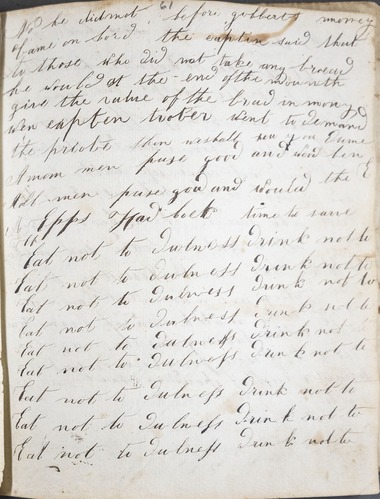 61
No he did not before gilberts money
Came on bord the captin said that
to those who did not take any bread
he would at the end of the mounth
give the value of the brad in money
wen capten went to demand
the
men good and
All men good and would the
Epps Had time to save
Eat not to Dulness Drink not to
Eat not to Dulness Drink not to
Eat not to Dulness Drink not to
Eat not to Dulness Drink not to
Eat not to Dulness Drink not to
Eat not to Dulness Drink not to
Eat not to Dulness Drink not to
Eat not to Dulness Drink not to
Eat not to Dulness Drink not to